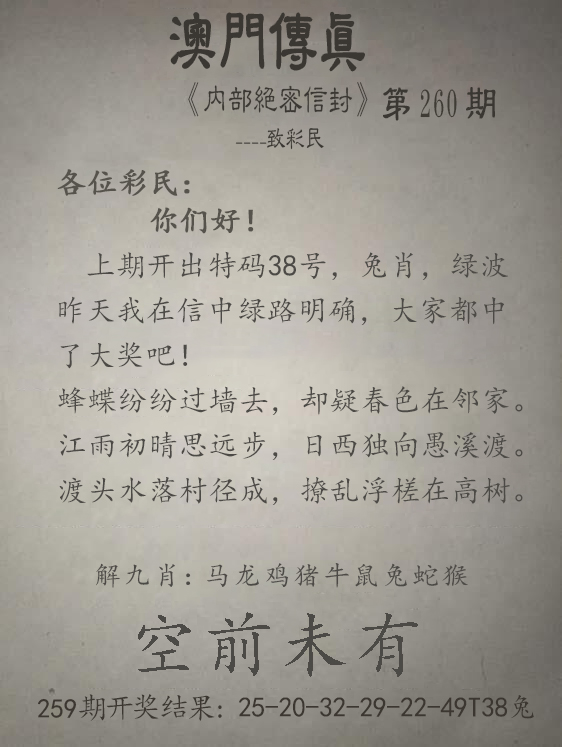 澳門傳眞
《内部絕密信封》第260期
----致彩民
各位彩民：
你们好！
上期开出特码38号，兔肖，绿波
昨天我在信中绿路明确，大家都中
了大奖吧！
蜂蝶纷纷过墙去，却疑春色在邻家。
江雨初晴思远步，日西独向愚溪渡。
渡头水落村径成，撩乱浮槎在高树。
解九肖：马龙鸡猪牛鼠兔蛇猴
空前未有
259期开奖结果：25-20-32-29-22-49T38兔